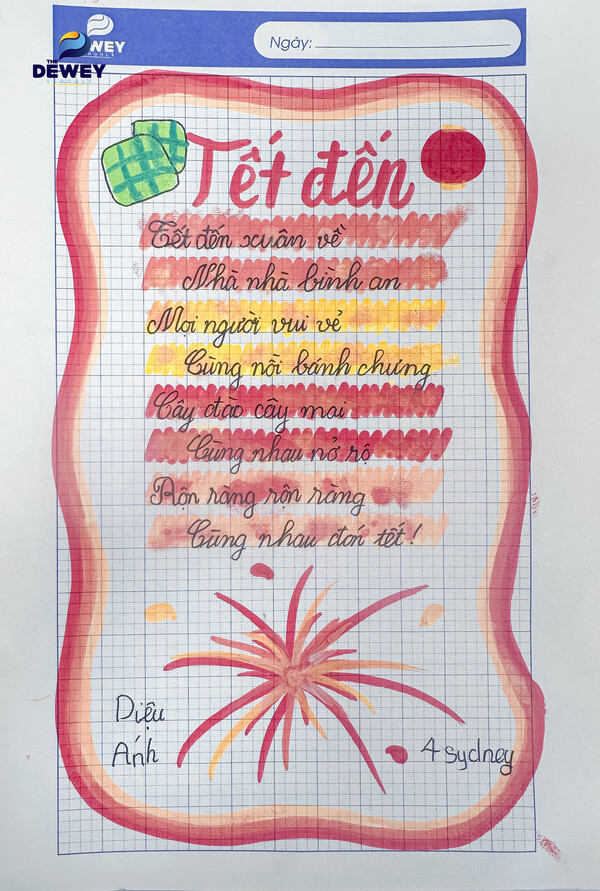 WEY
Ngày:
THE
DEWEY
Tết đến
Tết đến xuân về
Nhà nhà bình an
Mọi người vui vẻ
Cùng nồi bánh chưng
Cây đào cây mai
Cùng nhau nở rộ
Rộn ràng rộn ràng
Cùng nhau đón tết!
Diệu
Ánh
4 sydney